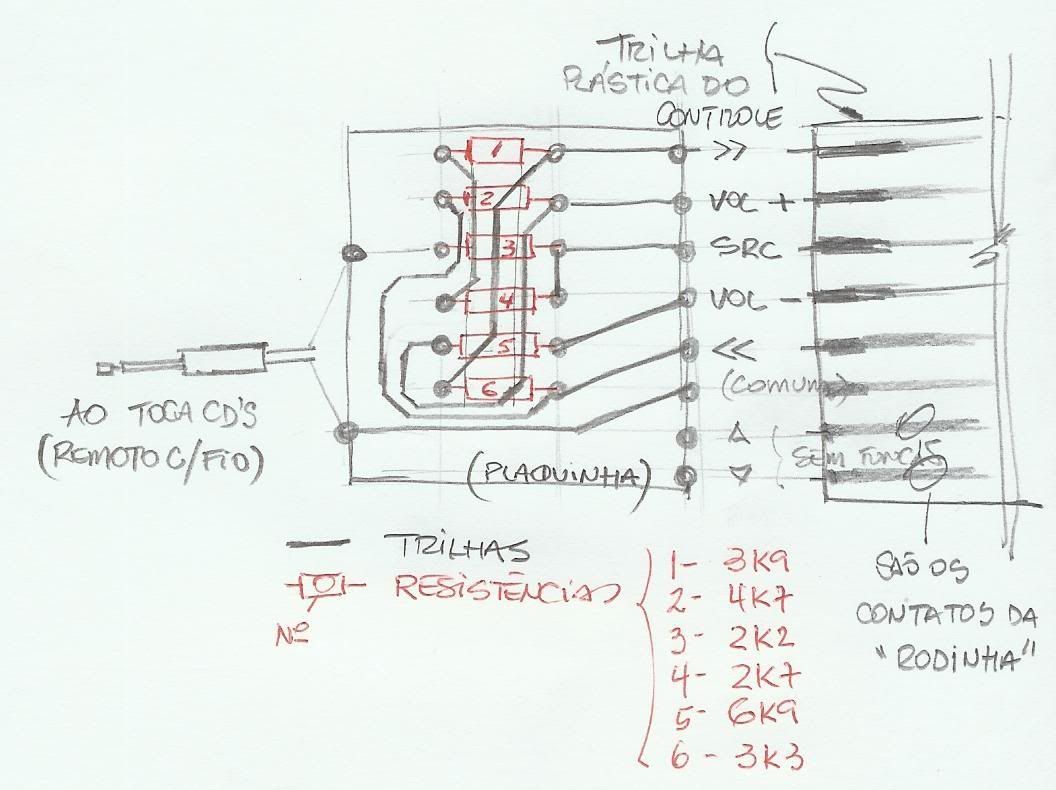 TRILHA
PLÁSTICA DO
CONTROLE
1
>>
2
VOL +
3
SRC
4
VOL -
5
<<
6
(COMUM)
AO TOCA CD'S
(REMOTO C/FIO)
(PLAQUINHA)
SEM FUNÇÃO
TRILHAS
RESISTÊNCIAS
Nº
1- 3K9
2- 4K7
3- 2K2
4- 2K7
5- 6K9
6- 3K3
SÃO OS
CONTATOS DA
"RODINHA"